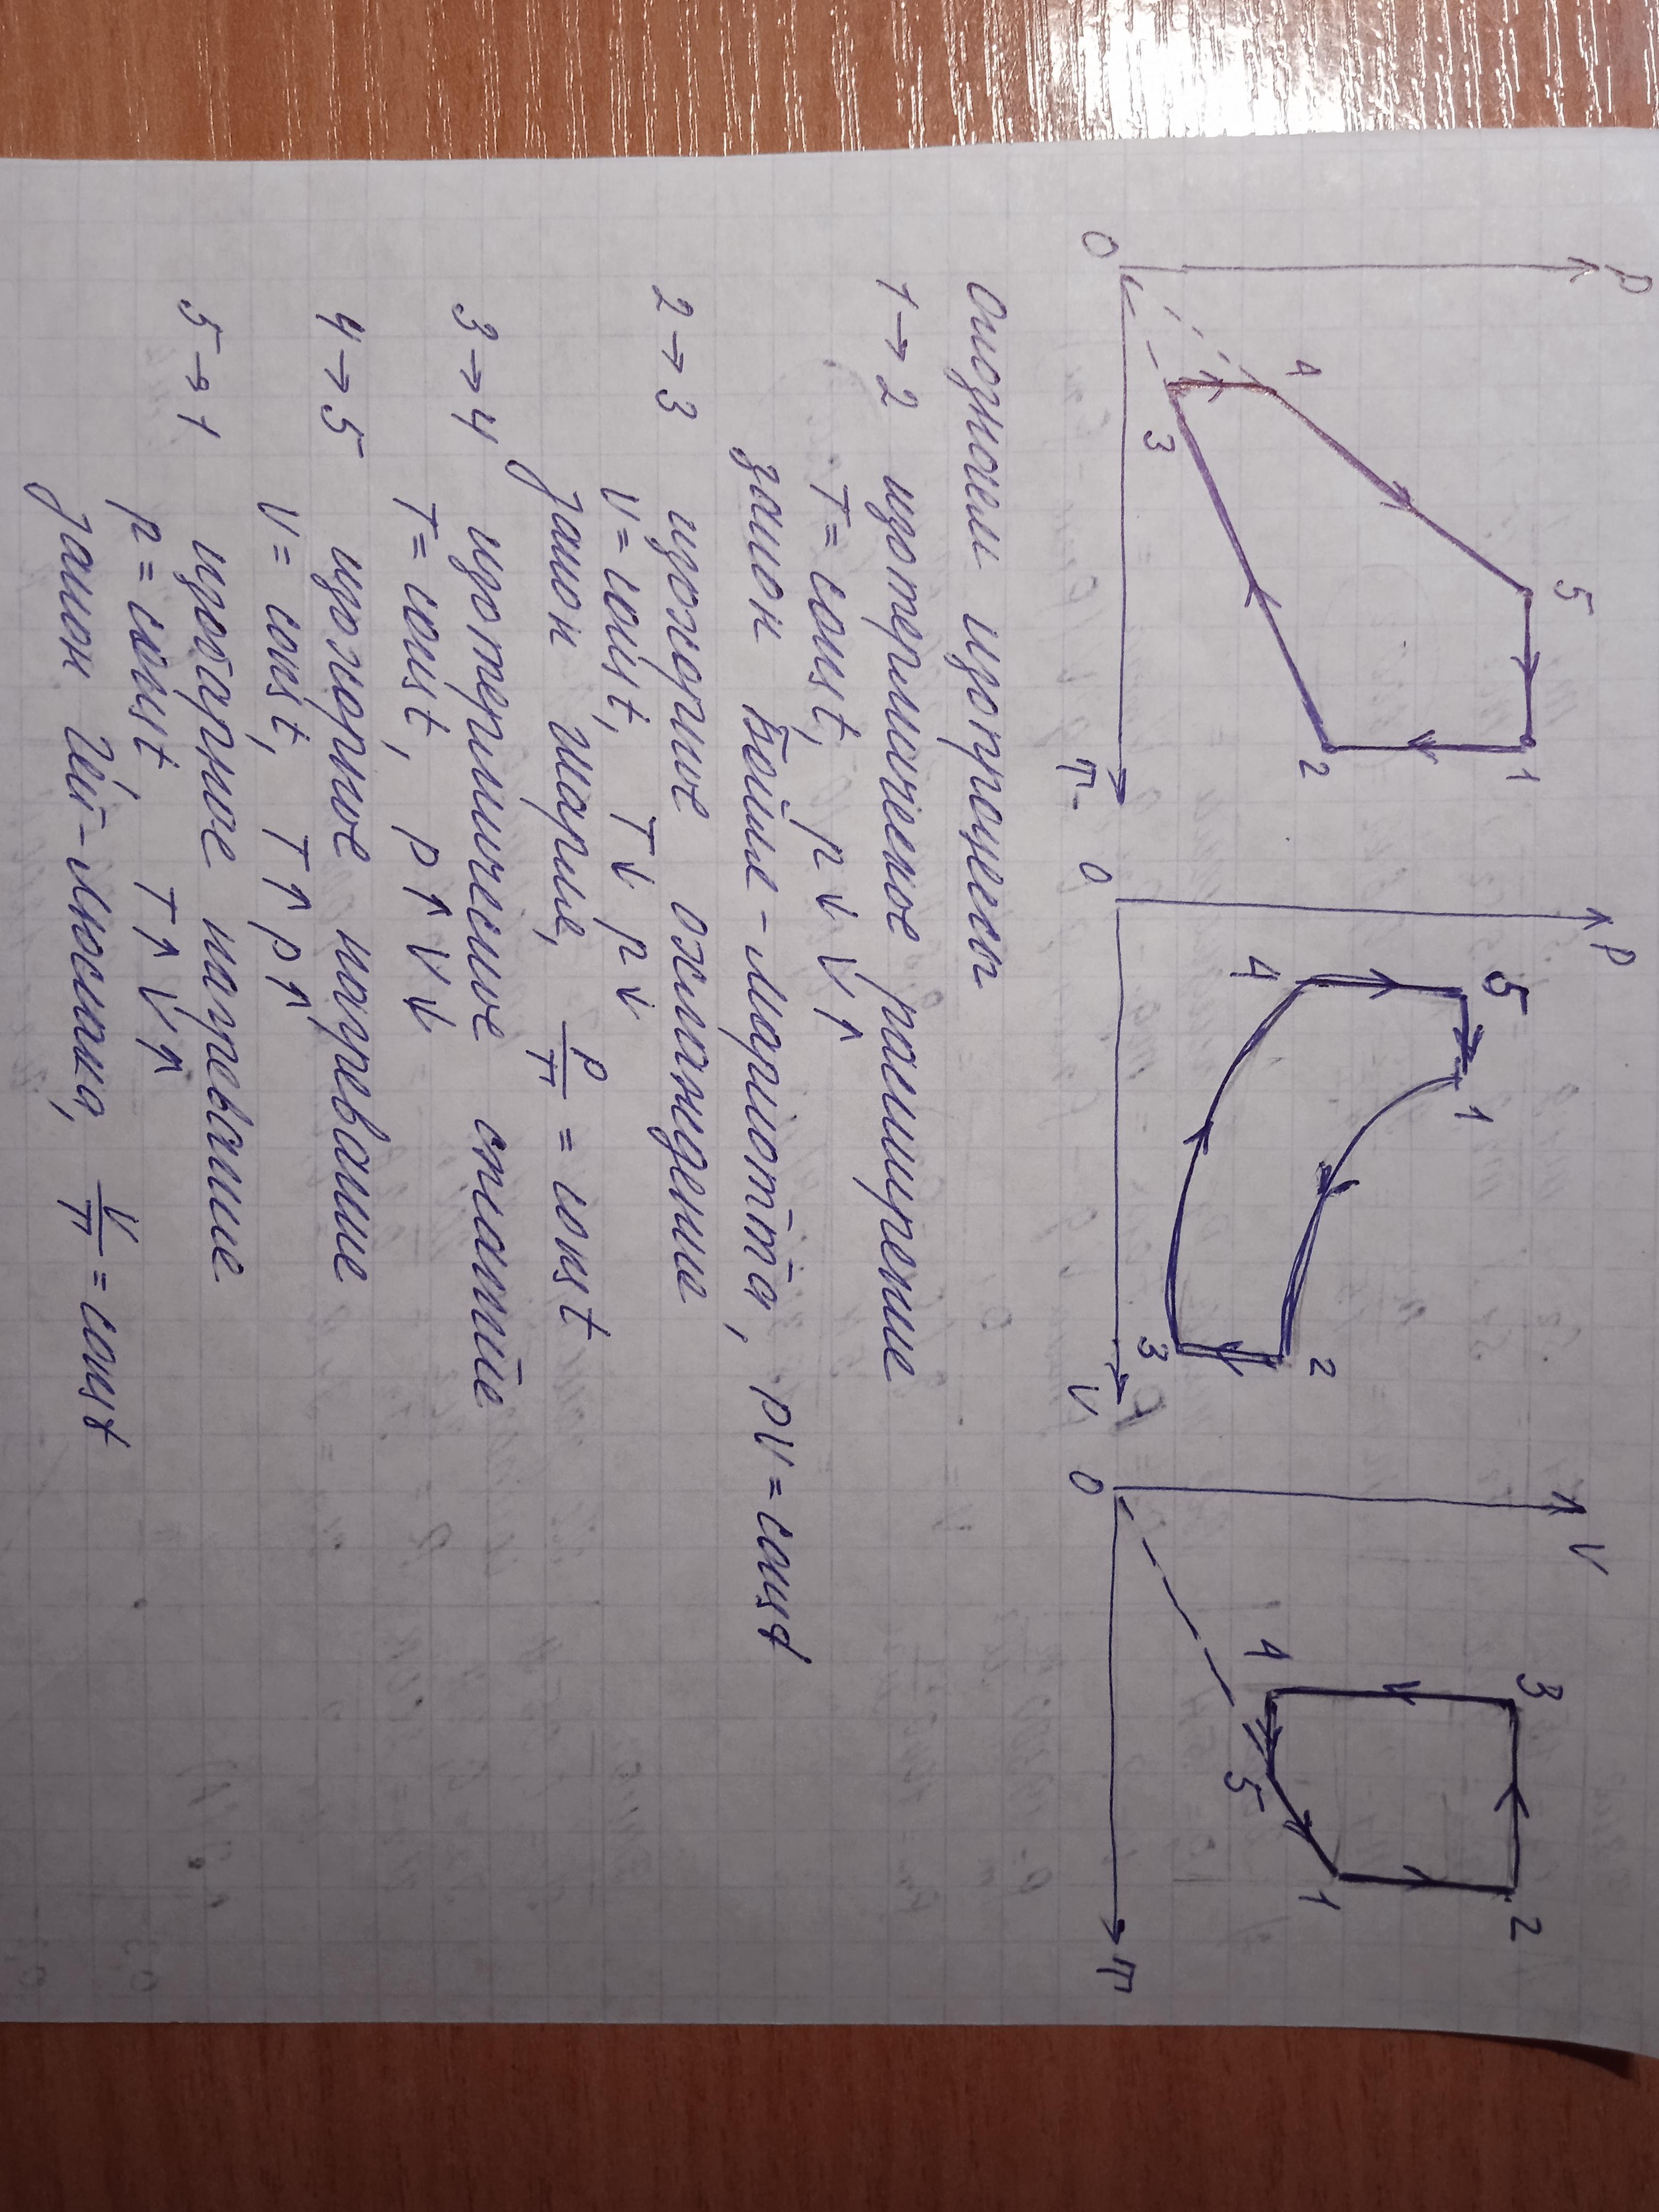 P P V
5 1 5 1 3 2
4 2 4 2 4 5 1
3 3
0 T 0 V 0 T
Опишем изопроцессы
1→2 изотермическое расширение
T = const, p↓ V↑
закон Бойля-Мариотта, pV = const
2→3 изохорное охлаждение
V = const, T↓ p↓
закон Шарля, p/T = const
3→4 изотермическое сжатие
T = const, p↑ V↓
4→5 изохорное нагревание
V = const, T↑ p↑
5→1 изобарное нагревание
p = const T↑ V↑
закон Гей-Люссака, V/T = const